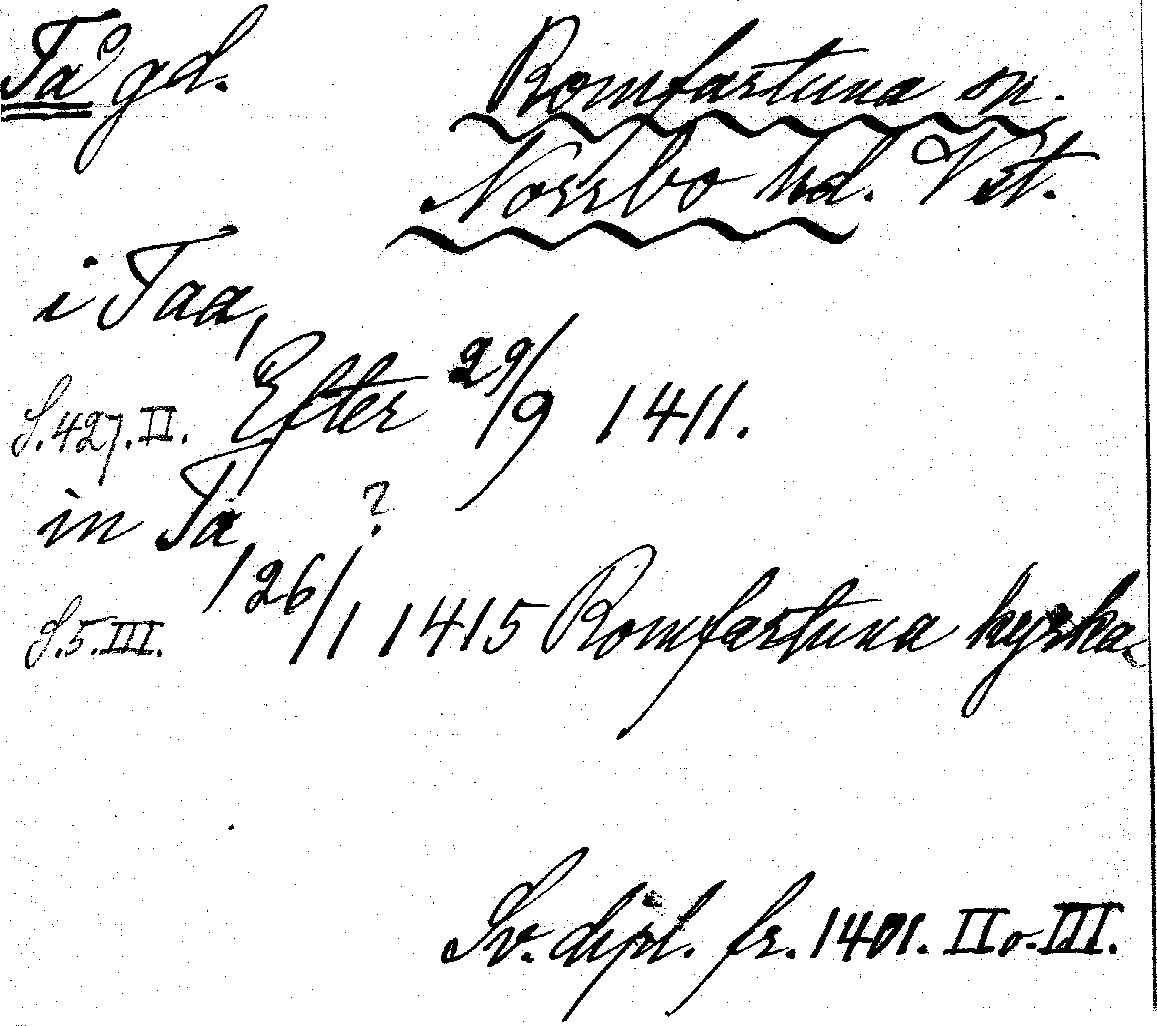 Tå gd.
Romfartuna sn.
Norrbo hd. Vst.
i Taa,
S. 427. II. Efter 29/9 1411.
in Ta, ?
S. 5. III. 26/1 1415 Romfartuna kyrka.
Sv. dipl. fr. 1401. II o. III.